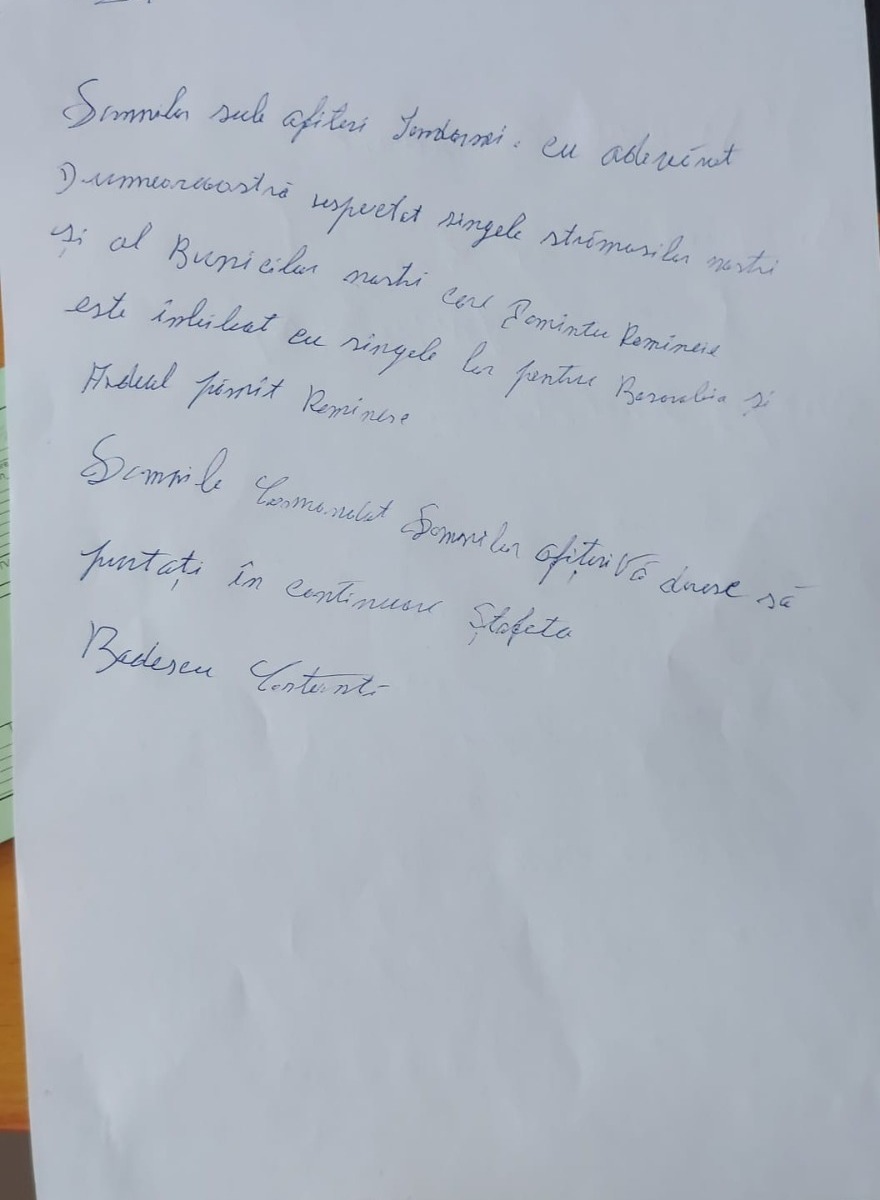 Domnilor sub ofiteri Jandarmi. cu adevărat
Dumneavoastră respectat singele strămosilor nostri
și al Bunicilor nostri care Pamintu Rominesc
este îmbibat cu singele lor pentru Basarabia și
Ardeal pămît Rominesc
Domnile Comandat Domnilor ofițeri Vă doresc să
purtați în continuare Ștafeta
Badescu